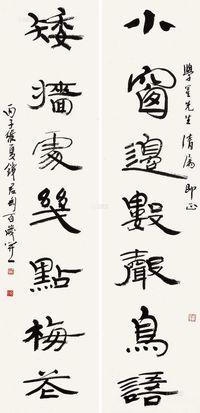 學星先生清屬即正
小窗邊數聲鳥語
矮牆處幾點梅花
丙子夏錢君匋